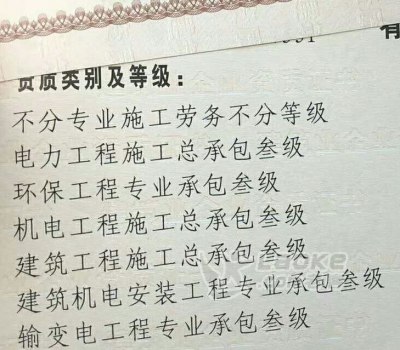 资质类别及等级:
不分专业施工劳务不分等级
电力工程施工总承包叁级
环保工程专业承包叁级
机电工程施工总承包叁级
建筑工程施工总承包叁级
建筑机电安装工程专业承包叁级
输变电工程专业承包叁级